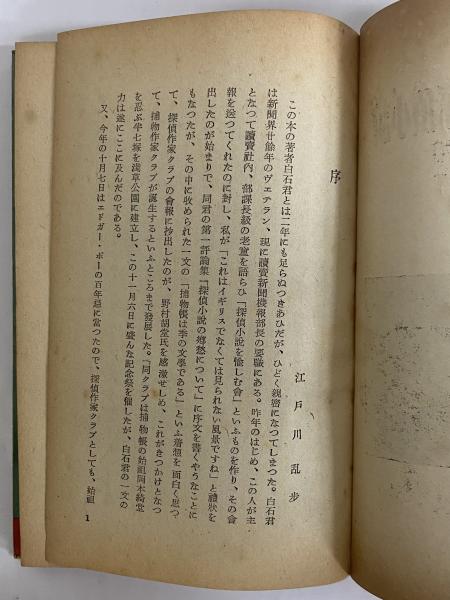 序
江戸川乱歩
この本の著者白石君とは二年にも足らぬつきあひだが、ひどく親密になつてしまつた。白石君
は新聞界廿餘年のヴェテラン、現に讀賣新聞機報部長の要職にある。昨年のはじめ、この人が主
となつて讀賣社内、部課長級の老童を語らひ「探偵小説を愉しむ會」といふものを作り、その會
報を送つてくれたのに對し、私が「これはイギリスでなくては見られない風景ですね」と禮狀を
出したのが始まりで、同君の第一評論集『探偵小説の郷愁について』に序文を書くやうなことに
もなつたが、その中に收められた一文の「捕物帳は季の文學である」といふ着想を面白く思つ
て、探偵作家クラブの會報に抄出したのが、野村胡堂氏を感激せしめ、これがきつかけとなつ
て、捕物作家クラブが誕生するといふところまで發展した。「同クラブは捕物帳の始祖岡本綺堂
を忍ぶ半七塚を淺草公園に建立し、この十一月六日に盛んな記念祭を催したが、白石君の一文の
力は遂にここに及んだのである。
又、今年の十月七日はエドガー・ポーの百年忌に當つたので、探偵作家クラブとしても、始祖
1